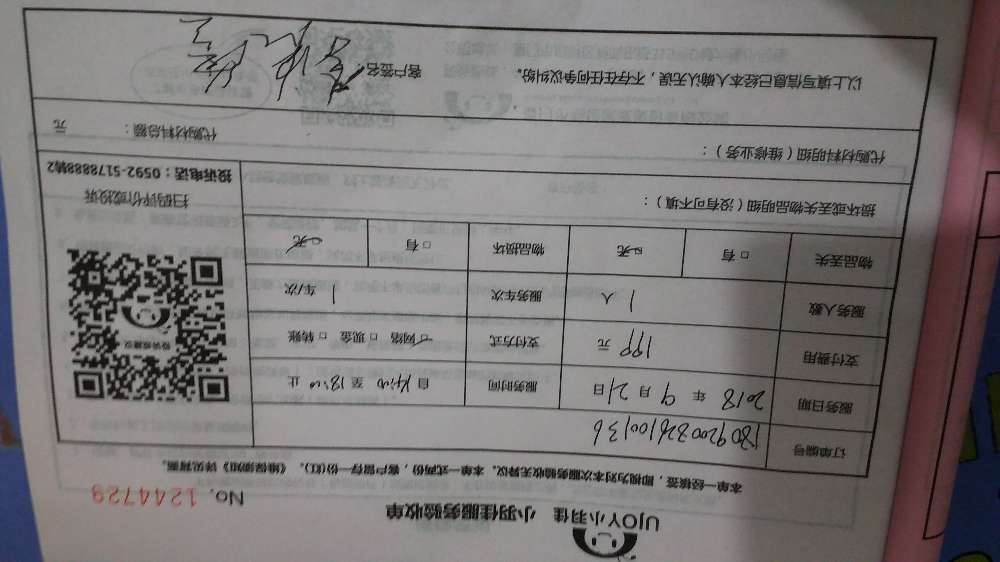 UJOY小羽佳 小羽佳服务验收单
No. 1244729
本单一经核签,即视为对本次服务验收无异议。本单一式两份,客户留存一份(红),《维保须知》详见背面。
订单编号 180920082610036
服务日期 2018 年 9 月 21 日 服务时间 自 14:00 至 18:00 止
支付费用 199 元 支付方式 网络 □ 现金 □ 转账
服务人数 1 人 服务车次 1 车/次
物品丢失 □ 有 □ 无 物品损坏 □ 有 □ 无
损坏或丢失物品明细(没有可不填):
代购材料明细(维修业务): 代购材料总额: 元
以上填写信息已经本人确认无误,不存在任何争议纠纷。 客户签名:
投诉或建议
扫码评价或投诉
投诉电话:0592-5178888转2